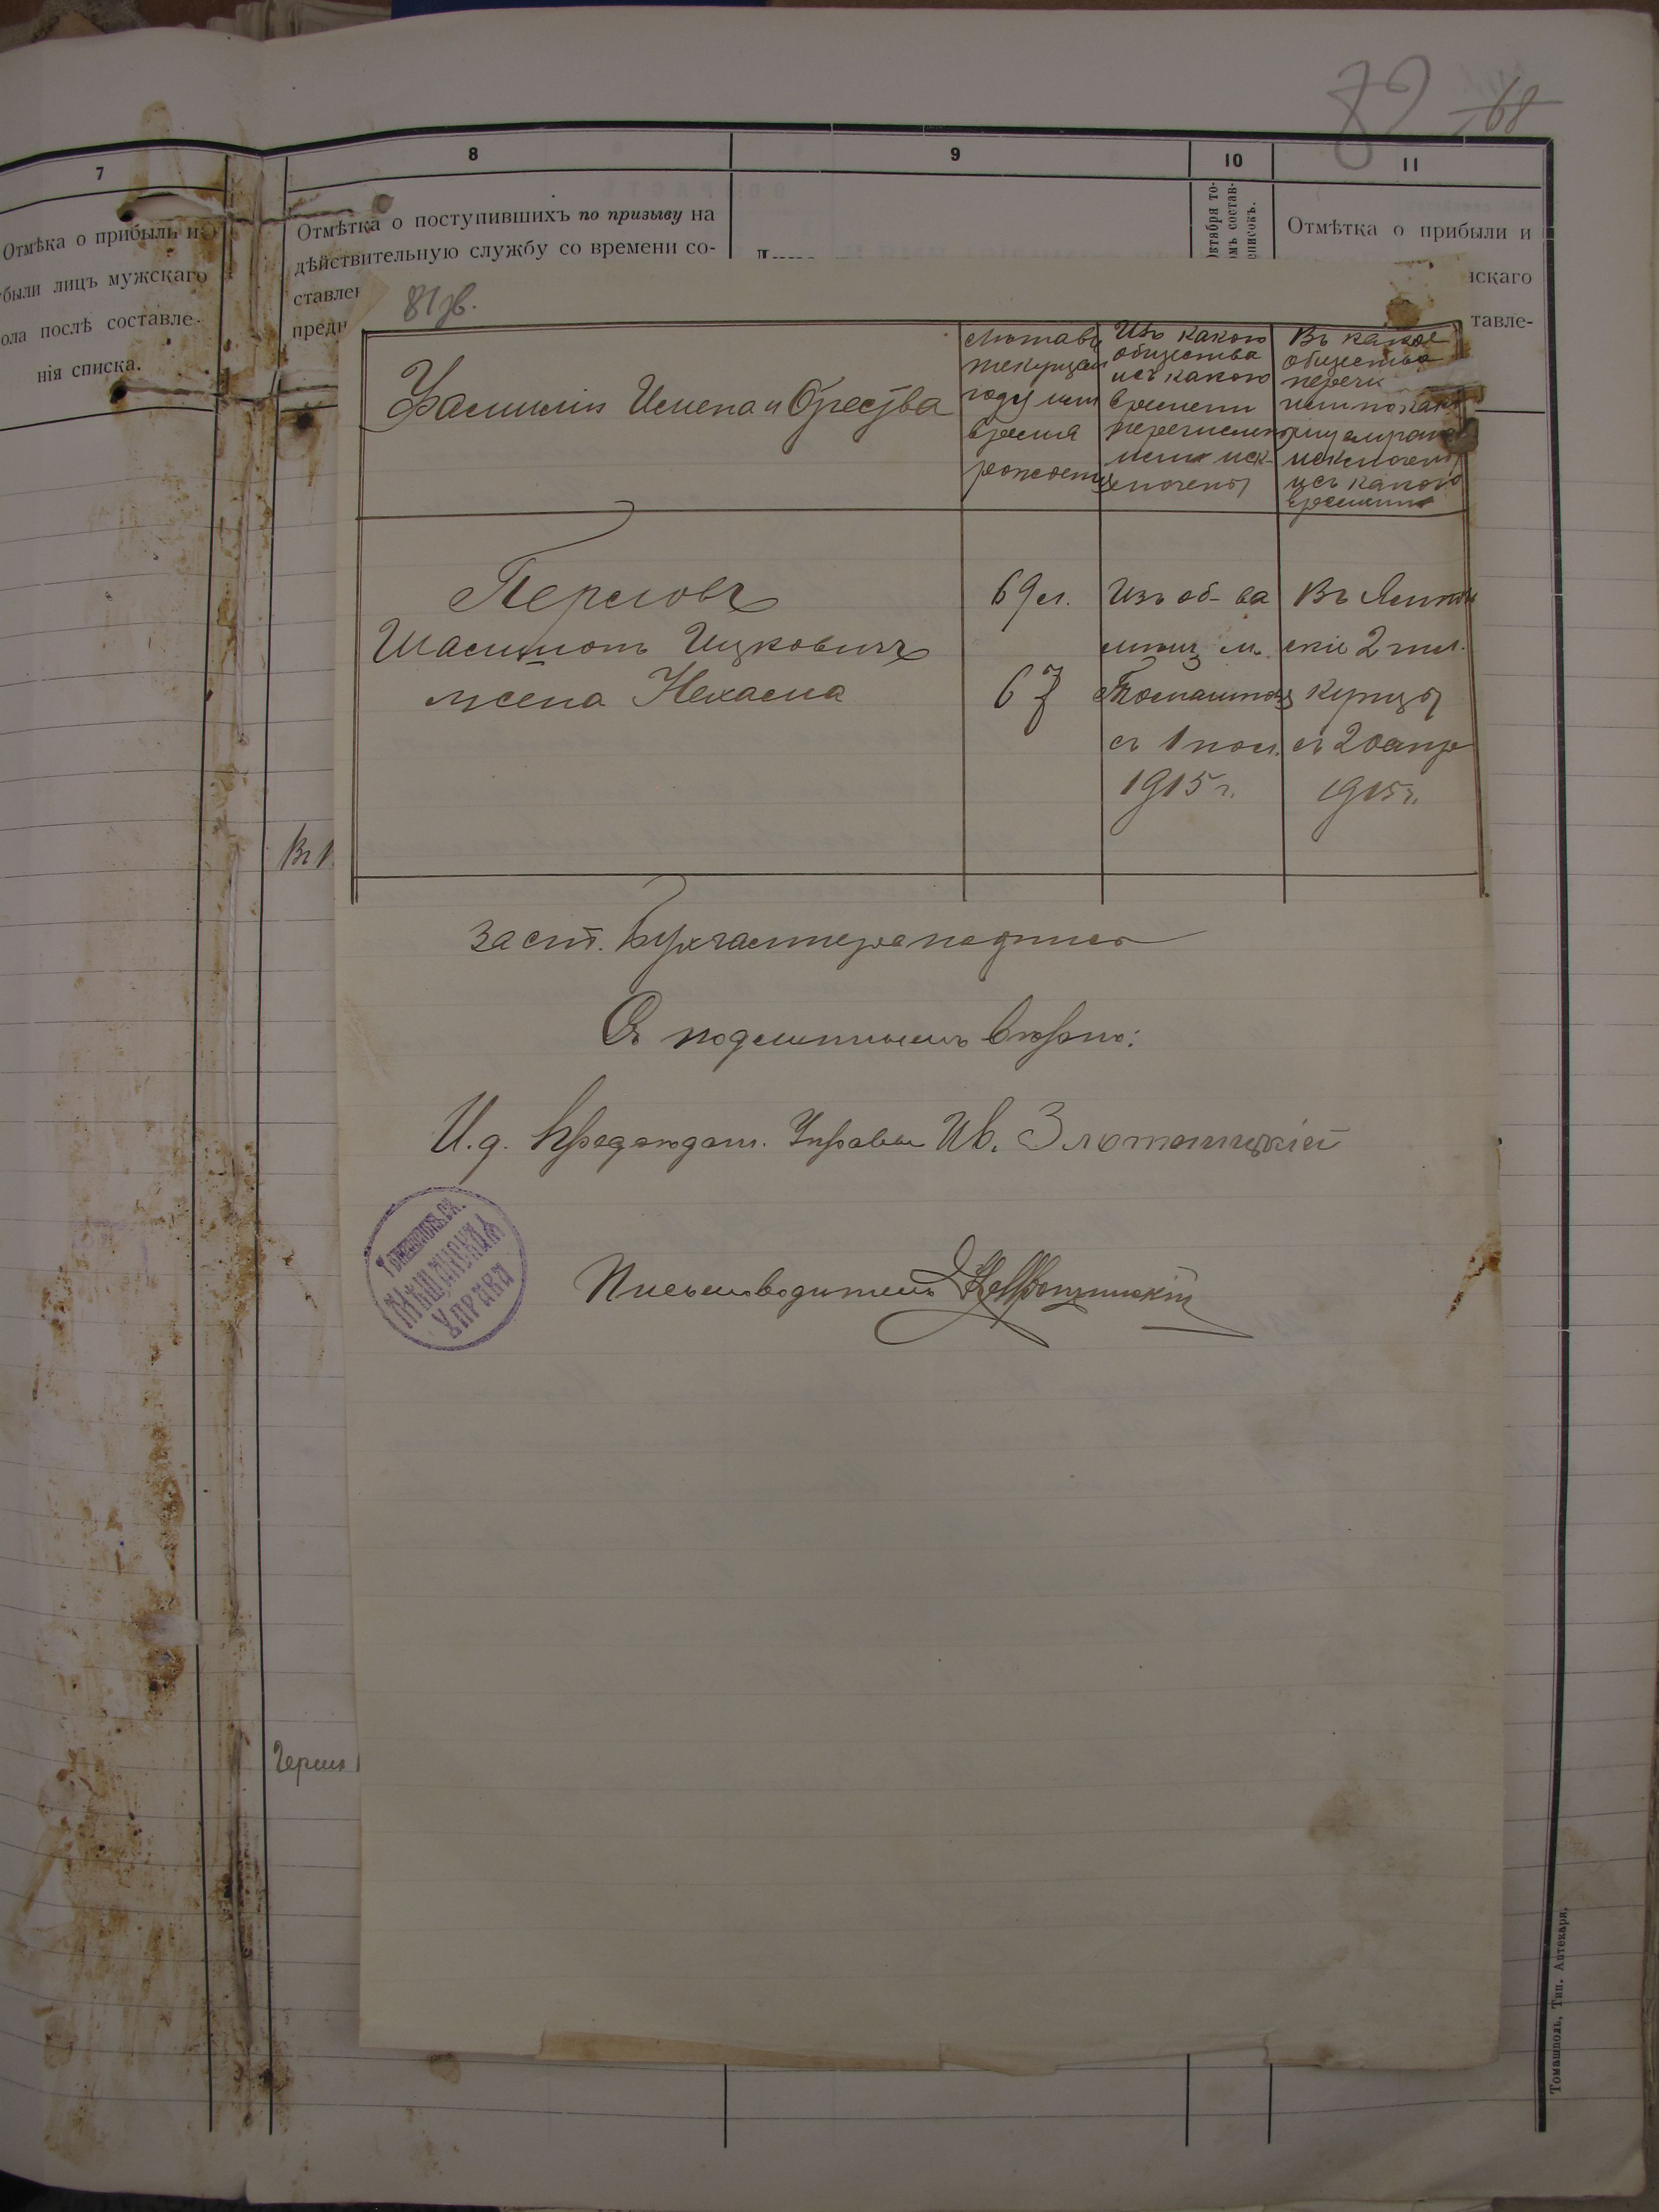 82 68
7
8
9
10
11
Отмѣка о прибыли и
были лицъ мужскаго
ола послѣ составле-
нія списка.
Отмѣтка о поступившихъ по призыву на
дѣйствительную службу со времени со-
ставлен
предн
ктября то-
омъ состав-
списокъ.
Отмѣтка о прибыли и
нскаго
тавле-
81 зв.
Фамиліи Имена и Отества
лѣта въ
текущем
году или
время
рожденія
Изъ какого
общества
и съ какого
времени
перечислены
или иск-
лючены
Въ какое
общество
перечи
исключены
и съ какого
времени
Перловъ
Шасмионъ Ицковичъ
жена Нехама
69 л.
67
Изъ об-ва
мѣщ. м.
Томашполь
съ 1 пол.
1915 г.
Въ
скіе 2 гил.
купцы
съ 20 апр
1915 г.
Въ
за ст. Бухгалтера подпись
Съ подлиннымъ вѣрно:
И. д. Предсѣдат. Управы Ив. Злотницкій
Томашпольск.
Мѣщанская
Управа
Письмоводитель
Томашполь, Тип. Аптекаря.